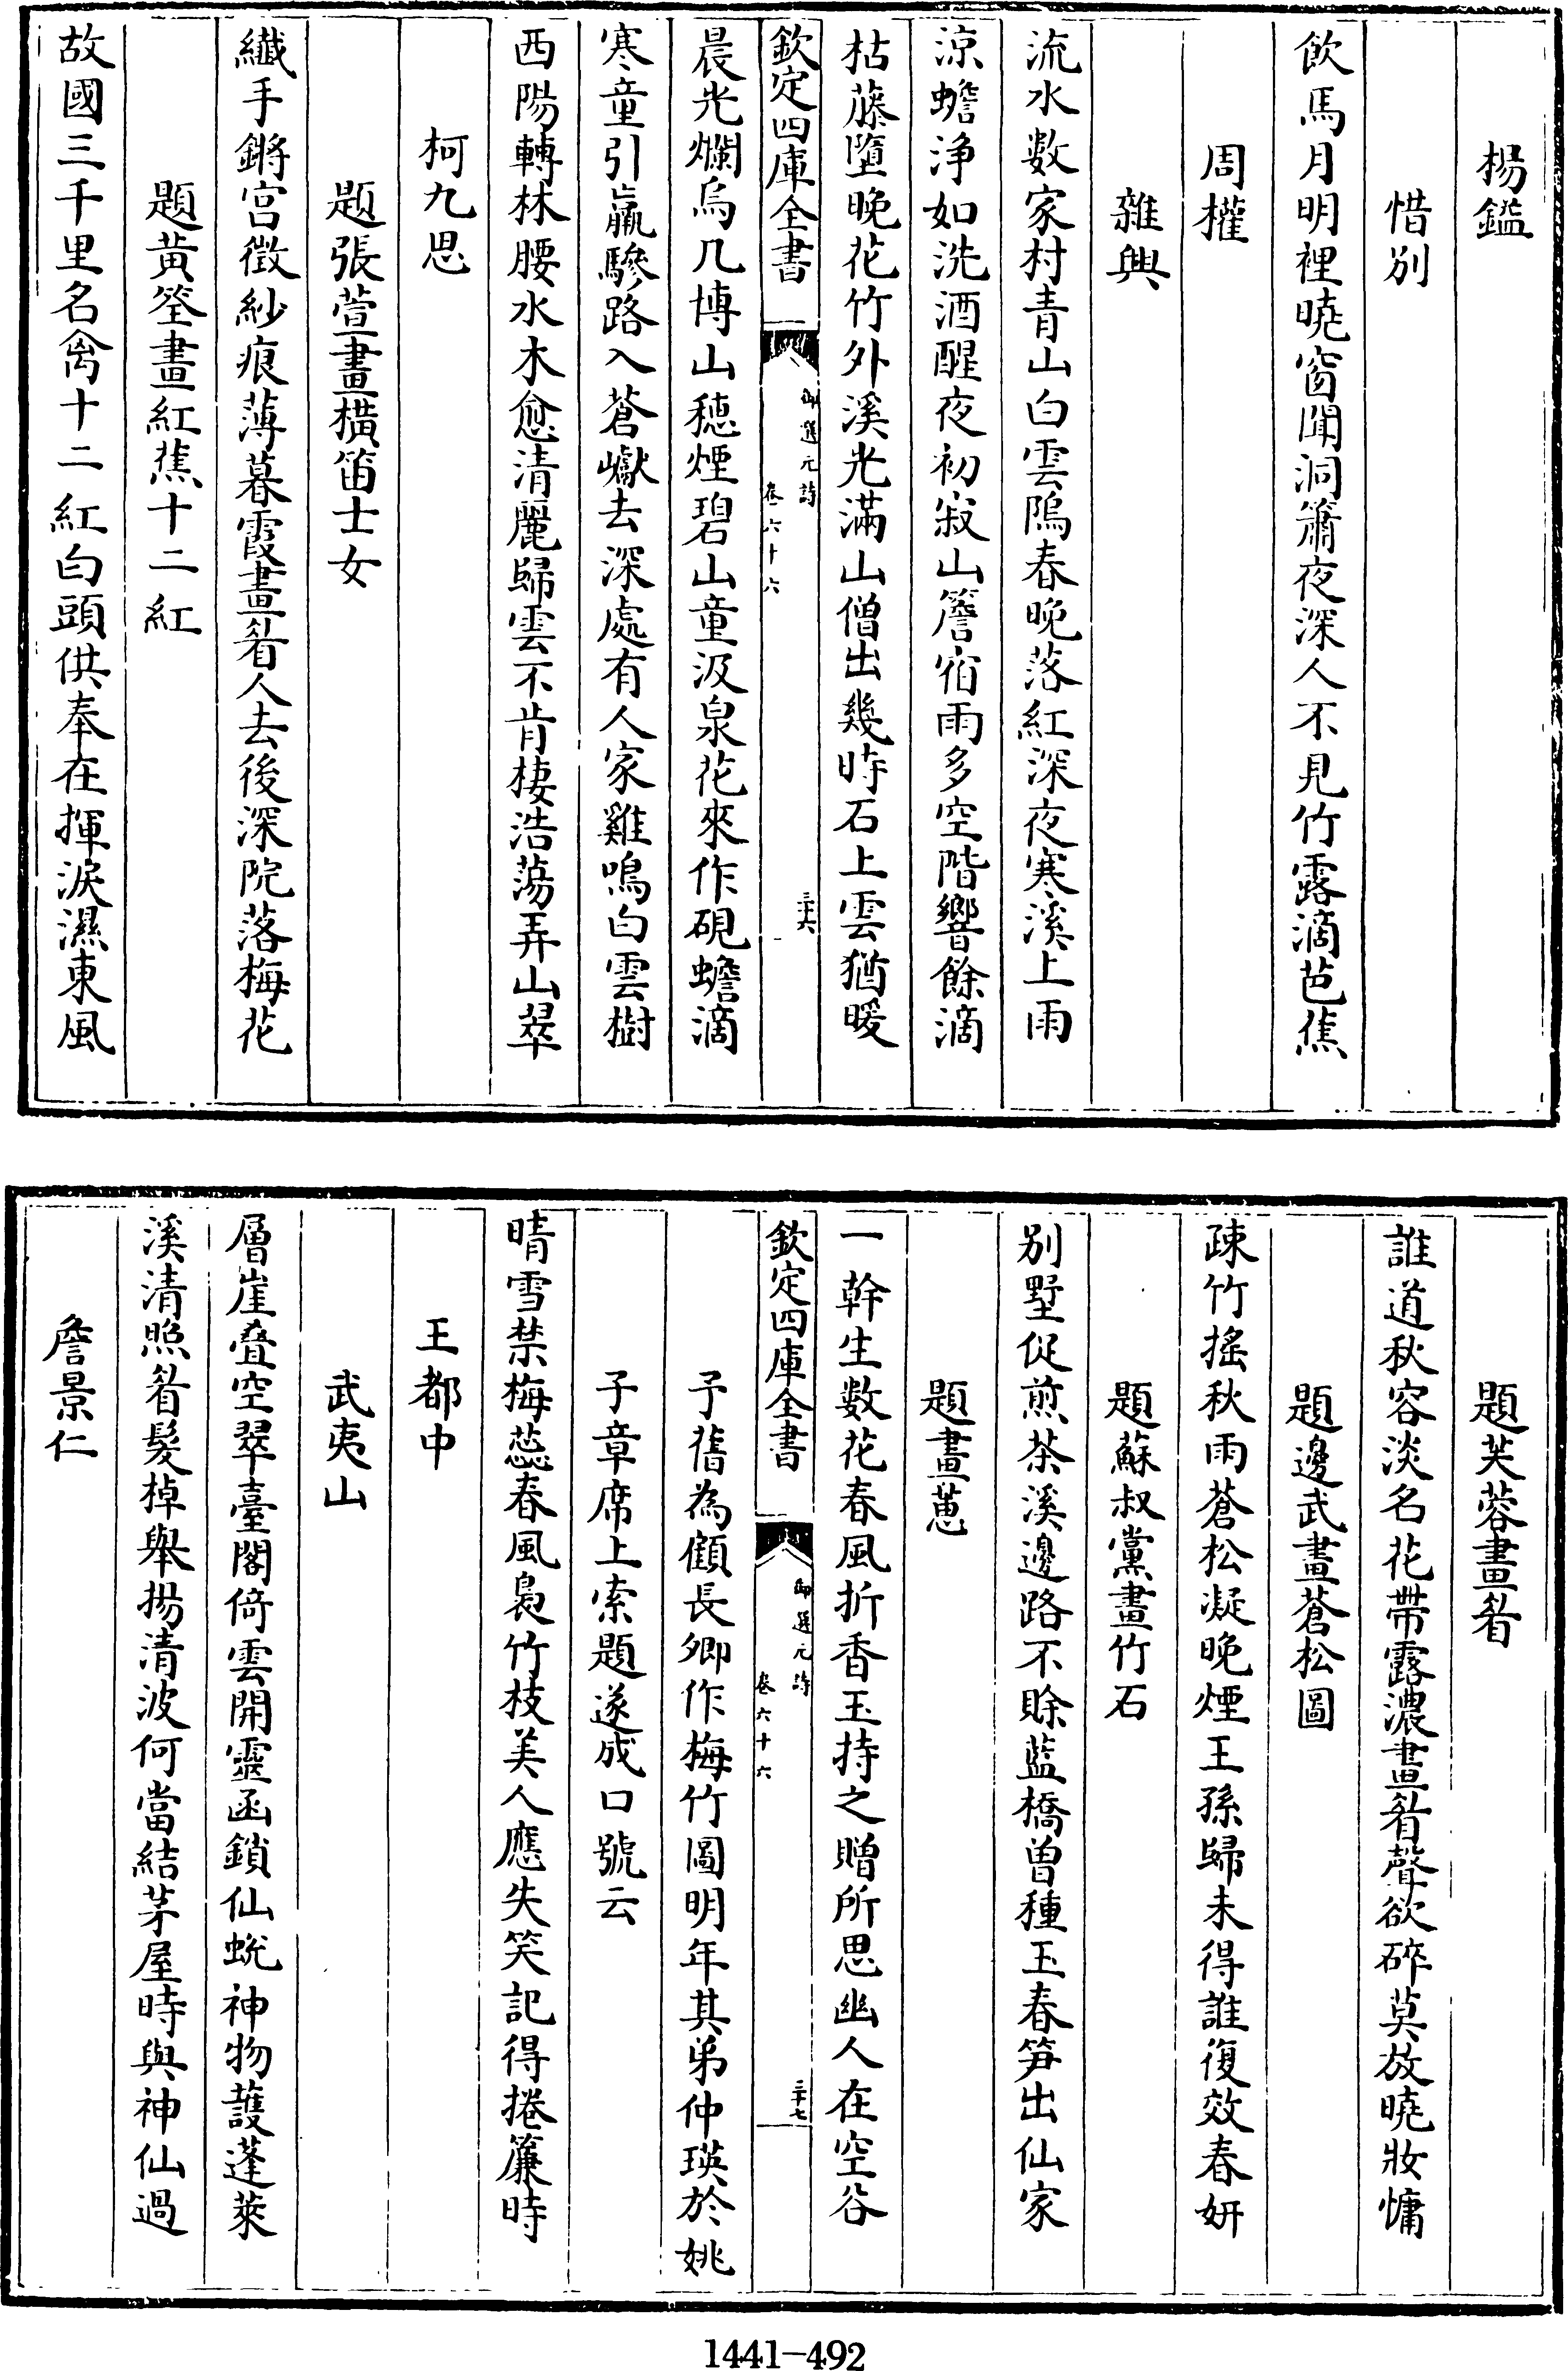 楊鑑
惜別
飲馬月明裡曉窗聞洞簫夜深人不見竹露滴芭焦
周權
雜興
流水数家村青山白雲隖春晚落紅深夜寒溪上雨
涼蟾浄如洗酒醒夜初寂山簷宿雨多空階響餘滴
枯藤墮晚花竹外溪光滿山僧出幾時石上雲猶暖
欽定四庫全書
御選元詩
卷六十六
三十六
晨光爛烏几博山穗煙碧山童汲泉花來作硯蟾滴
寒童引羸驂路入蒼巘去深處有人家雞鳴白雲樹
西陽轉林腰水木愈清麗歸雲不肯棲浩蕩弄山翠
柯九思
題張萱畫橫笛士女
纎手鏘宫徵紗痕薄暮霞畫眉人去後深院落梅花
題黄筌畫紅蕉十二紅
故國三千里名禽十二紅白頭供奉在揮淚濕東風
題芙蓉畫眉
誰道秋容淡名花帶露濃畫眉聲欲碎莫放曉妝慵
題邊武畫蒼松圖
疎竹搖秋雨蒼松凝晚煙王孫歸未得誰復效春妍
題蘇叔黨畫竹石
別墅促煎茶溪邊路不賒藍橋曽種玉春笋出仙家
題畫蕙
一幹生数花春風折香玉持之贈所思幽人在空谷
欽定四庫全書
御選元詩
卷六十六
三十七
予舊為顧長卿作梅竹圖明年其弟仲瑛於姚
子章席上索題遂成口號云
晴雪禁梅蕊春風裊竹枝美人應失笑記得捲簾時
王都中
武夷山
層崖疊空翠臺閣倚雲開靈函鎖仙蛻神物護蓬萊
溪清照眉髮棹舉揚清波何當結茅屋時與神仙過
詹景仁
1441-492